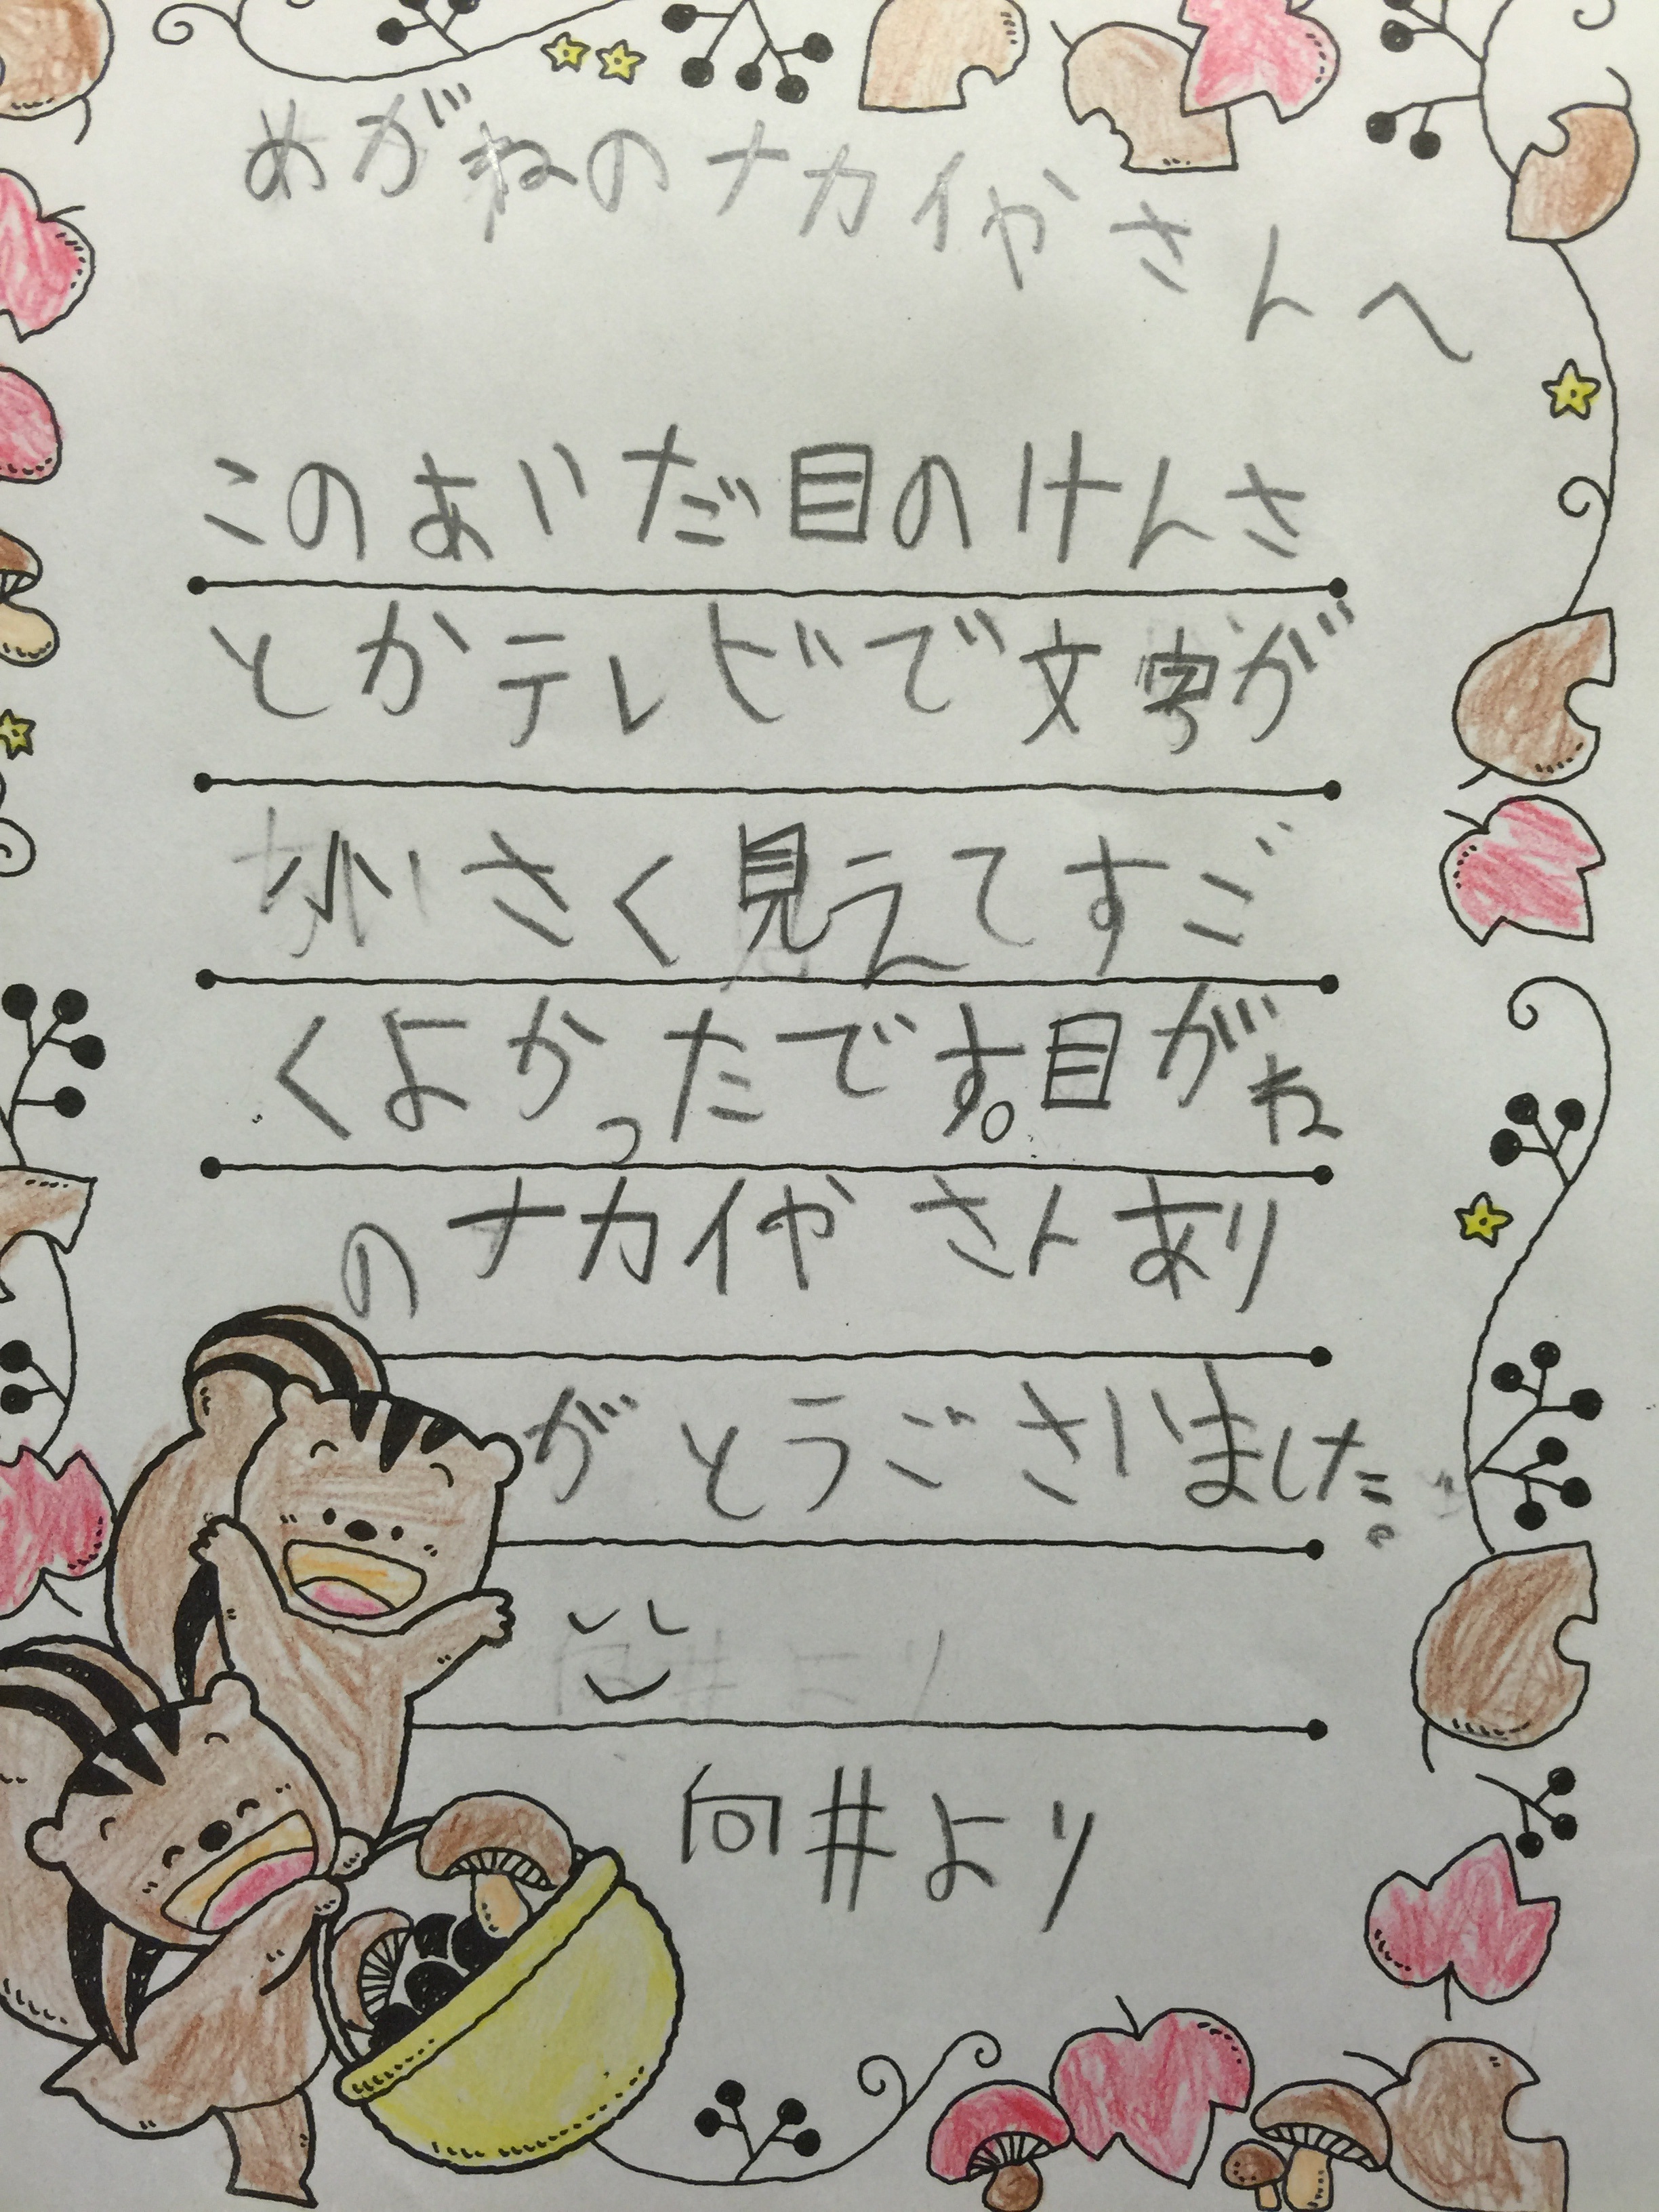 めがねのナカイやさんへ
このあいだ目のけんさ
とかテレビで文字が
小さく見えてすご
くよかったです。目がね
のナカイやさんあり
がとうごさいました。
向井より
向井より